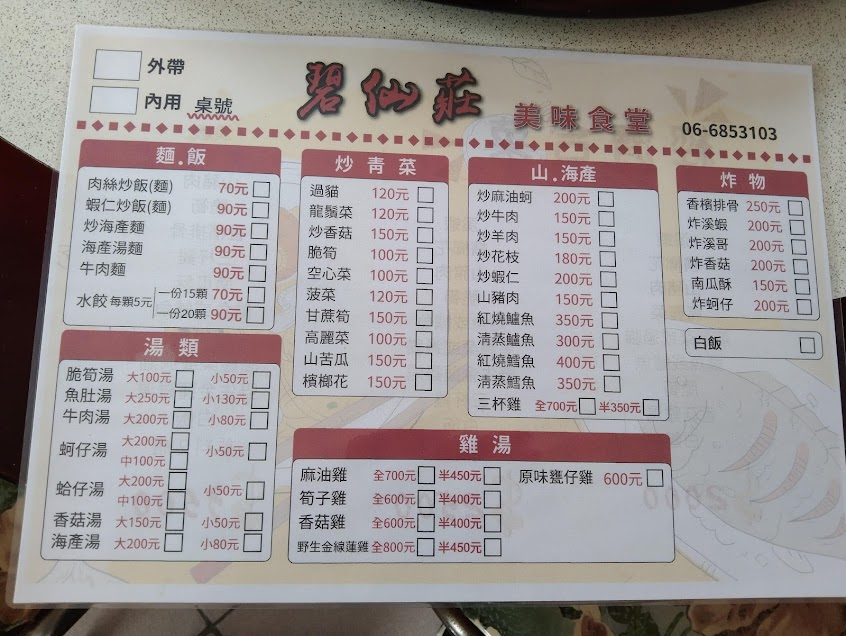 外帶
內用 桌號
碧仙莊 美味食堂
06-6853103
麵.飯
肉絲炒飯(麵) 70元
蝦仁炒飯(麵) 90元
炒海產麵 90元
海產湯麵 90元
牛肉麵 90元
水餃 每顆5元 一份15顆 70元
一份20顆 90元
湯類
脆筍湯 大100元 小50元
魚肚湯 大250元 小130元
牛肉湯 大200元 小80元
蚵仔湯 大200元 中100元 小50元
蛤仔湯 大200元 中100元 小50元
香菇湯 大150元 小50元
海產湯 大200元 小80元
炒青菜
過貓 120元
龍鬚菜 120元
炒香菇 150元
脆筍 100元
空心菜 100元
菠菜 120元
甘蔗筍 150元
高麗菜 100元
山苦瓜 150元
檳榔花 150元
山.海產
炒麻油蚵 200元
炒牛肉 150元
炒羊肉 150元
炒花枝 180元
炒蝦仁 200元
山豬肉 150元
紅燒鱸魚 350元
清蒸鱸魚 300元
紅燒鱈魚 400元
清蒸鱈魚 350元
三杯雞 全700元 半350元
炸物
香檳排骨 250元
炸溪蝦 200元
炸溪哥 200元
炸香菇 200元
南瓜酥 150元
炸蚵仔 200元
白飯
雞湯
麻油雞 全700元 半450元 原味甕仔雞 600元
筍子雞 全600元 半400元
香菇雞 全600元 半400元
野生金線蓮雞 全800元 半450元